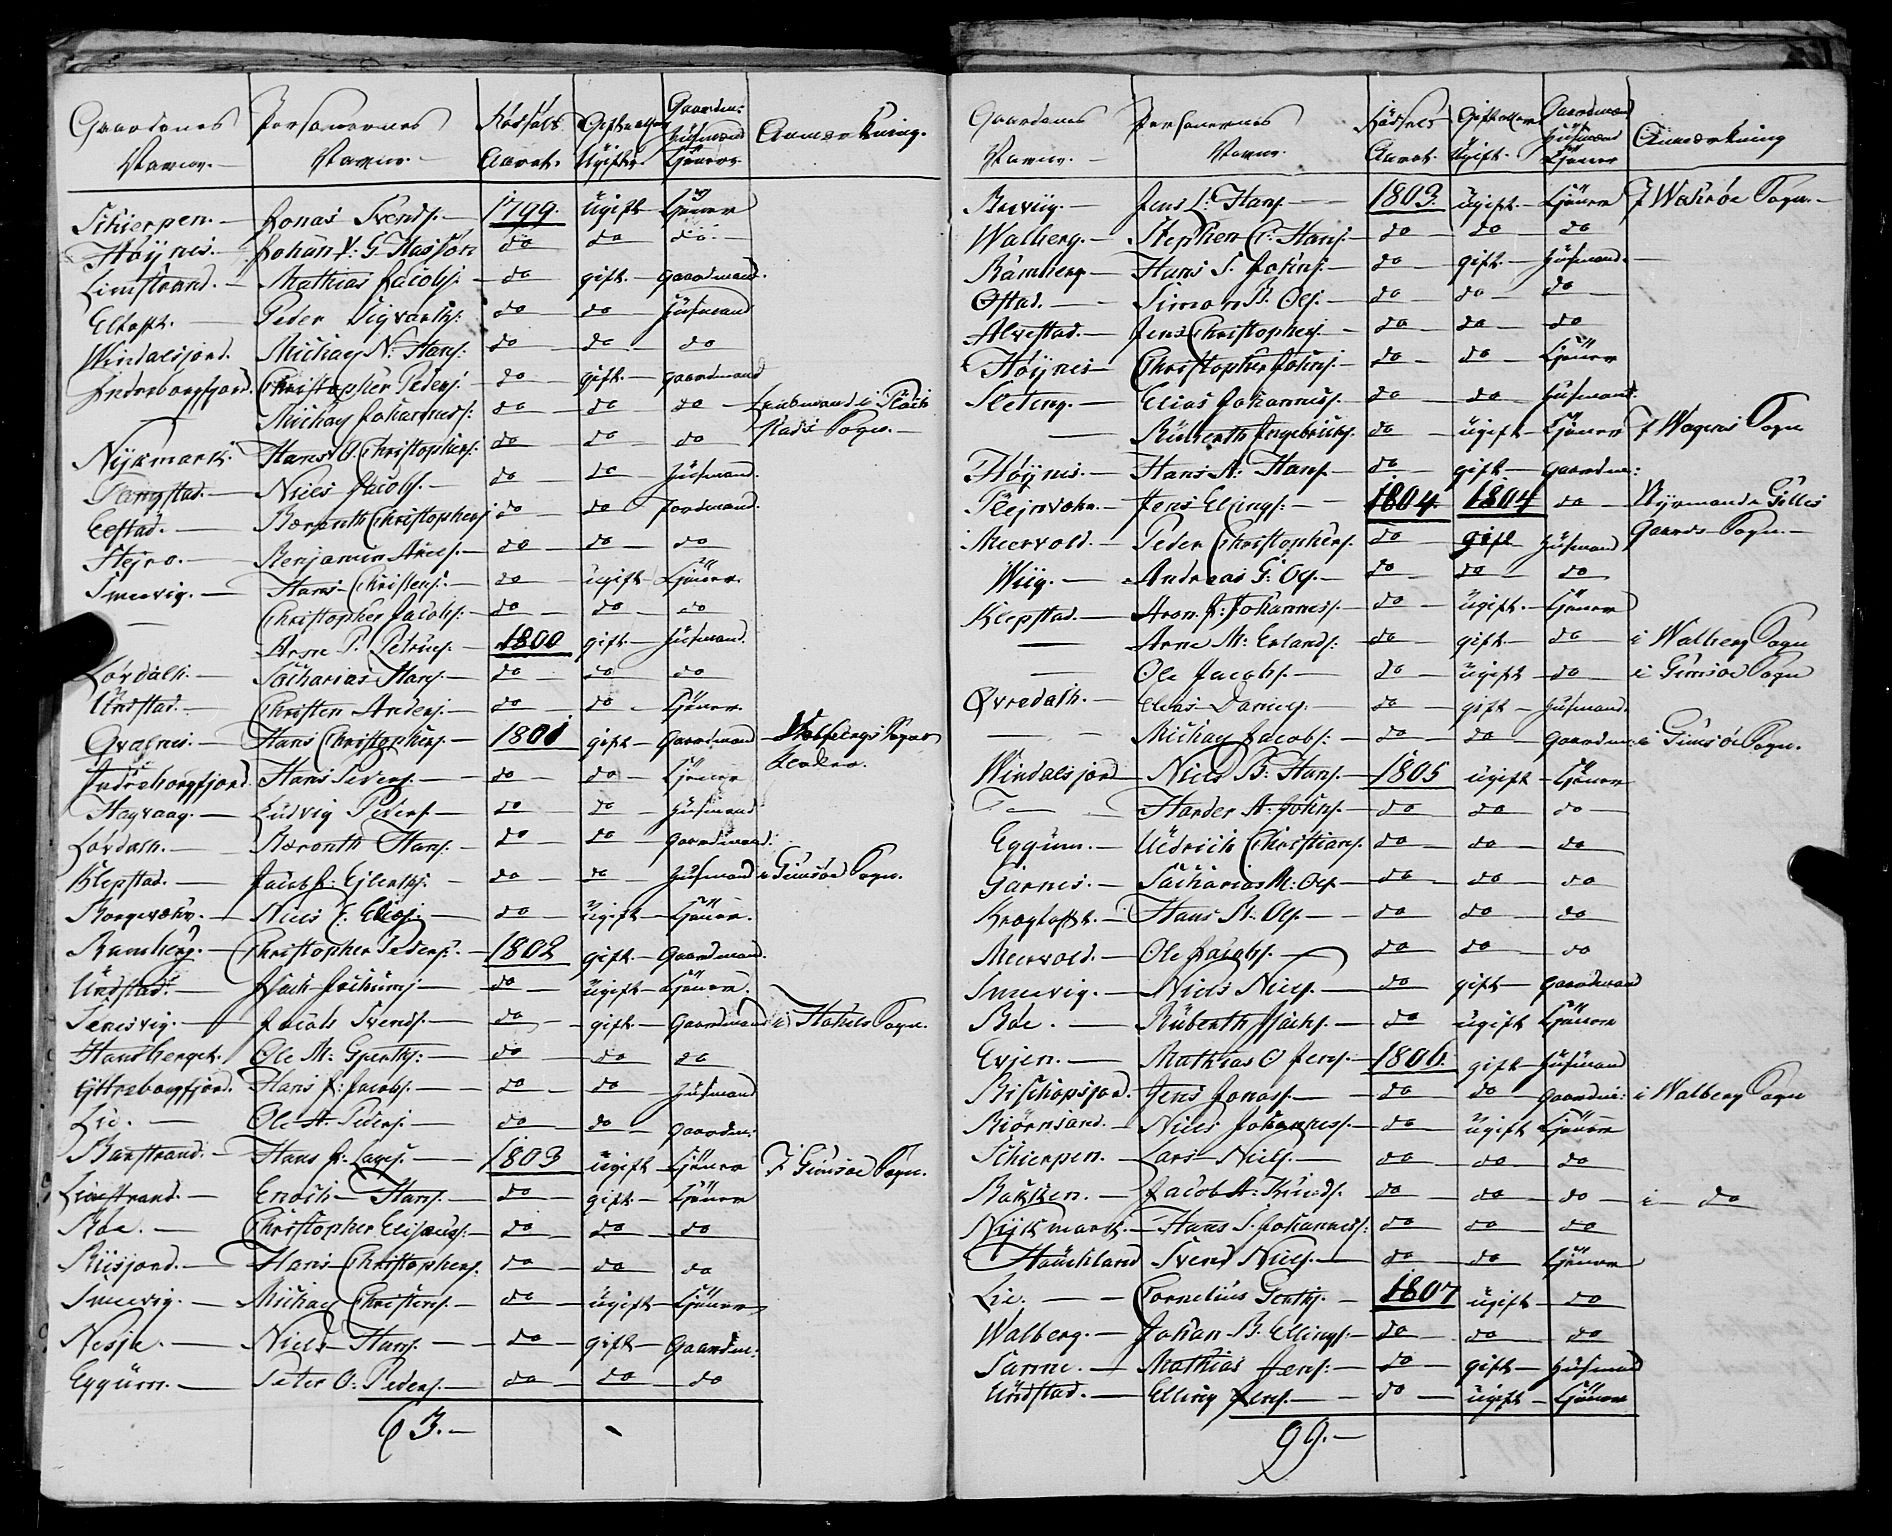 Gaardenes Navne. Personernes Navne. Födsels Aaret. Gift eller Ugifte Gaardm: Huusmænd Tjenere Anmærkning.
Schierpen. — Jonas Svends. — 1799. ugift Tjener
Höynes. — Johan do do do
Limstrand. — Mathias Jacobs: — do gift. — gaardmand.
Eltoft. — Peder Sigvards: do do Huusmand
Windalsjord. Michael N: Hans: do do do
Indreborgfjord. Christopher Peders: — do gift — gaardmand
Michael Johannes: do — do do —
Nykmark. Hans Christophers: do do do Sogn. —
Nangstad. — Niels Jacobs. — do — do Huusmand.
Eestad. — Berenth Christophers do — do
Stejro — Benjamin Niels. — do — do — do
Smeevig. — Hans Christens: — do — ugift Tjener.
— Christopher Jacobs: do — do — do
Arn P. Petrus. — 1800 gift — Huusmand.
Lövdalh. — Sacharias Hans. — do — do do
Undstad. — Christen Anders. — do — do — Tjener.
Qvalnes. — Hans Christophers. — 1801 gift — Gaardmand — Walbergs Sogns
Indreborgfjord Hans Peders. — do — do — Tjener
Hagvaag. — Ludvig Peders. — do do Huusmand
Lövdalh. — Berenth Hans. — do — do — gaardmand:
Klepstad. — Jacob J: Ejlerths. — do — do — Huusmand i Gimsöe Sogn.
Borgevæhr. — Niels E: Elias. — do — ugift — Tjener.
Ramberg. — Christopher Peders: — 1802 gift — Gaardmand.
Undstad. — Isach Jochums. — do — ugift — Tjener.
Tenesvig. — Jacob Svends. — do — gift — Gaardmand i Hohols Sogn.
Handberget. Ole M: — do — do do
Yttreborgfjord. Hans J: Jacobs. — do — do — Huusmand
Lie. — Ole A. Peders. — do — do — gaardm:
Barstrand. — Hans J: Lars. — 1803 ugift Tjener I Gimsöe Sogn.
Limstrand. — Enoch Hans. — do — gift — Tjener
Böe. — Christopher Eliseus: — do do do
Riisjord. — Hans Christophers. do — do do
Smeevig. — Michael Christens. — do — ugift — Tjener
Nesje. — Niels Hans. — do — gift — Gaardm:
Eggum. — Peter O: Peders. — do — do — do
63. —
Gaardenes Navne. — Personernes Navne. Födsels Aaret. Gift eller Ugift. Gaardmænd Huusmænd Tjener Anmærkning
Brevig. — Jens L: Hans. — 1803. ugift. — Tjener I Wahröe Sogn. —
Walberg. — Stephen C: Hans. — do — do — do
Ramberg — Hans S. Johns: — do gift. — Huusmand. —
Ofstad. — Simon P. Ols. — do do do —
Alvestad. — Jens Christophers. — do — do — do
Höynes — Christopher Johns. — do — do — Tjener
Sletting. — Elias Johannes. — do — do Huusmand.
— Ruberth Ingebrichs. do — ugift — Tjener I Wagens Sogn
Höynes. — Hans A: Hans. — do gift — gaardm:
Plejnvæhr. — Jens Ellings. — 1804. 1804 do — Styrmand i Gilles
Meervold. — Peder Christophers. do — gift Huusmand Gaards Sogn. —
Wiig. — Andreas G: Ols. — do do — do
Klepstad. — Aron J: Johannes. — do — ugift. — Tjener
— Arne M: Erlands: — do — gift — do — i Walberg Sogn
— Ole Jacobs. — do — ugift — do — i Gimsöe Sogn
Qvredalh. — Elias Daniels. — do — gift — Huusmand.
— Michael Jacobs: — do — do — Gaardm: i Gimsöe Sogn.
Windalsjord Niels B: Hans. — 1805 ugift — Tjener
Harder A. Johns. — do — do — do —
Eggum. — Uldrich Christians. do — do — do
Garnes. — Sacharias M: Ols — do — do — do
Kragtoft. — Hans P. Ols — do — do — do
Meervold. — Ole Jacobs. — do — do — do
Smeevig. — Niels Niels. — do gift — Gaardmand
Böe. — Ruberth Isachs. — do ugift Tjener
Evjen. — Mathias O Jens. — 1806. gift — Huusmand
Bischopsjord. Jens Jonas. — do do — Gaardm: i Walberg Sogn
Biörnsand. — Niels Johannes. — do — ugift Tjener
Schierpen. — Lars Niels. — do — do — do
Bakken. — Jacob A: Knuds. do — do — do — i — do
Nykmark. — Hans S. Johannes: do — do — do
Hauchland Svend Niels. — do — do Tjener
Lie. — — Cornelius Genths. — 1807 ugift — do
Walberg. — Johan B: Ellings. — do — do — do
Sanne. — Mathias Jens: — do gift — Huusmand
Undstad. — Elling Jens. — do — ugift — Tjener
99. —